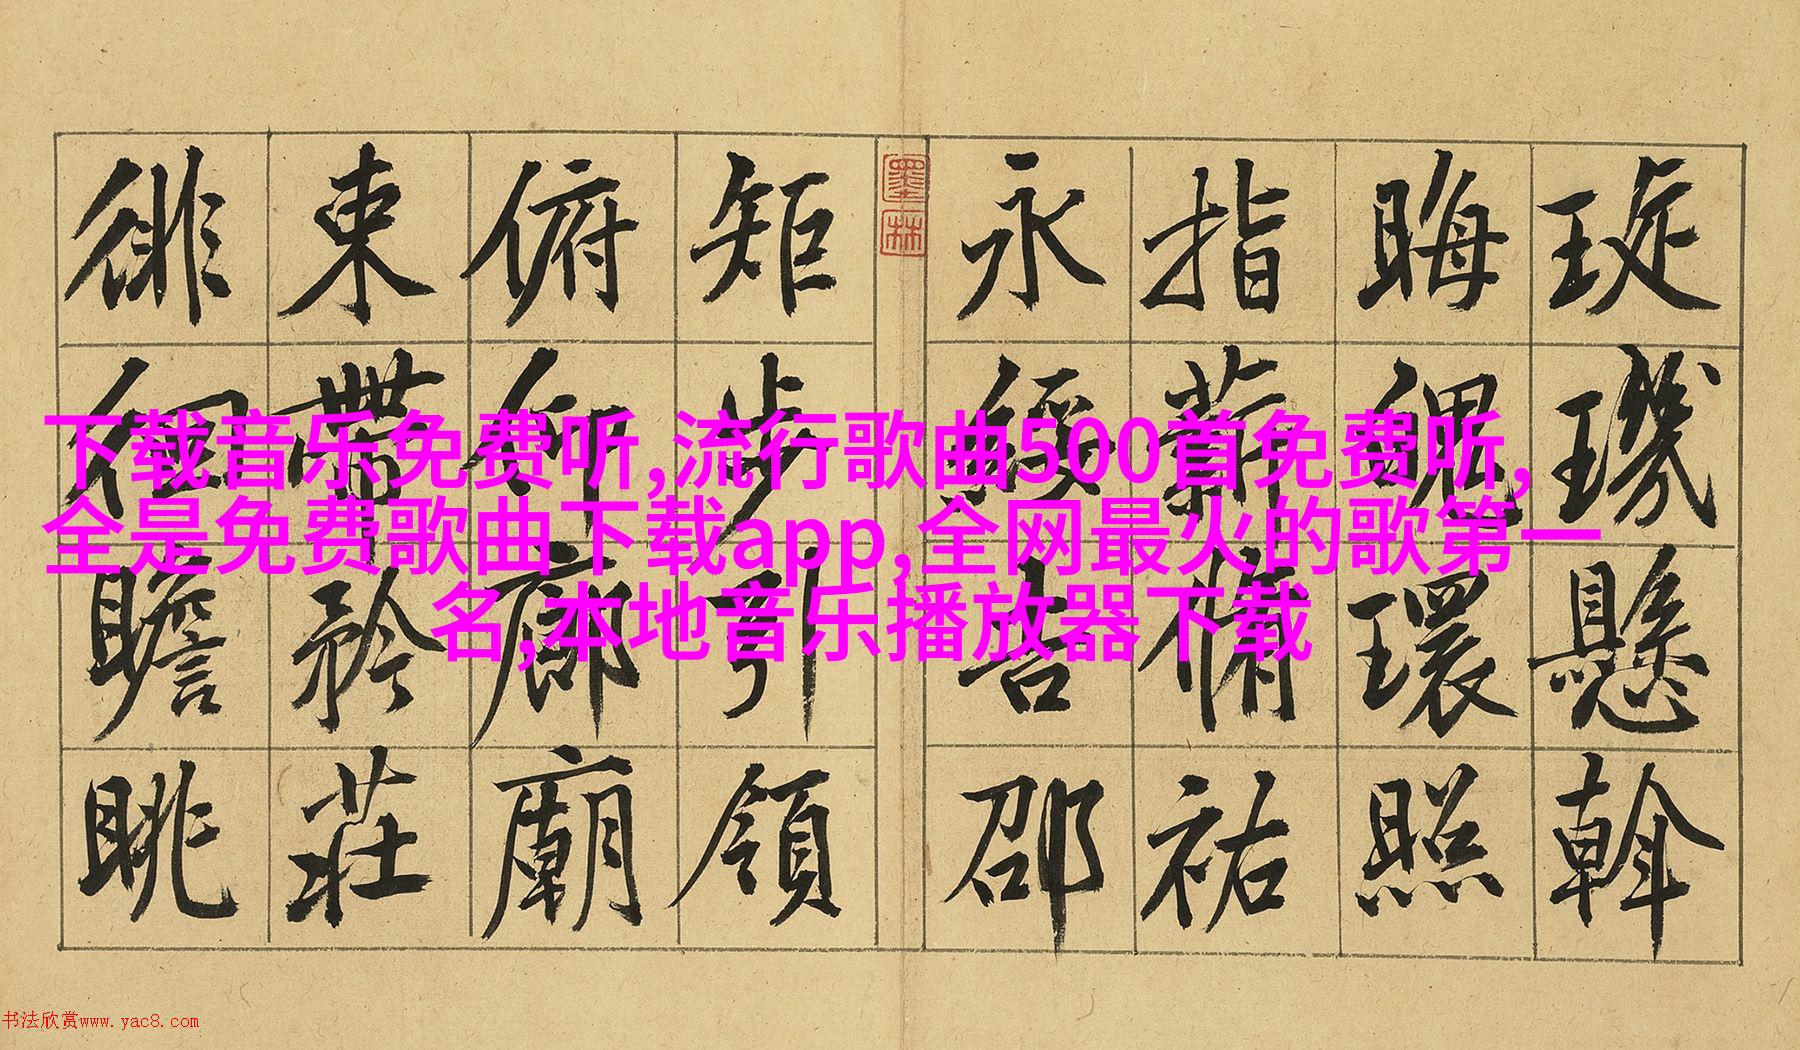 琁璣懸斡
晦魄環照
指薪脩祐
永綏吉邵
墨林
矩步引領
俯仰廊廟
束帶矜莊
徘徊瞻眺
下载音乐免费听,流行歌曲500首免费听,
全是免费歌曲下载app,全网最火的歌第一
名,本地音乐播放器下载
书法欣赏www.yac8.com